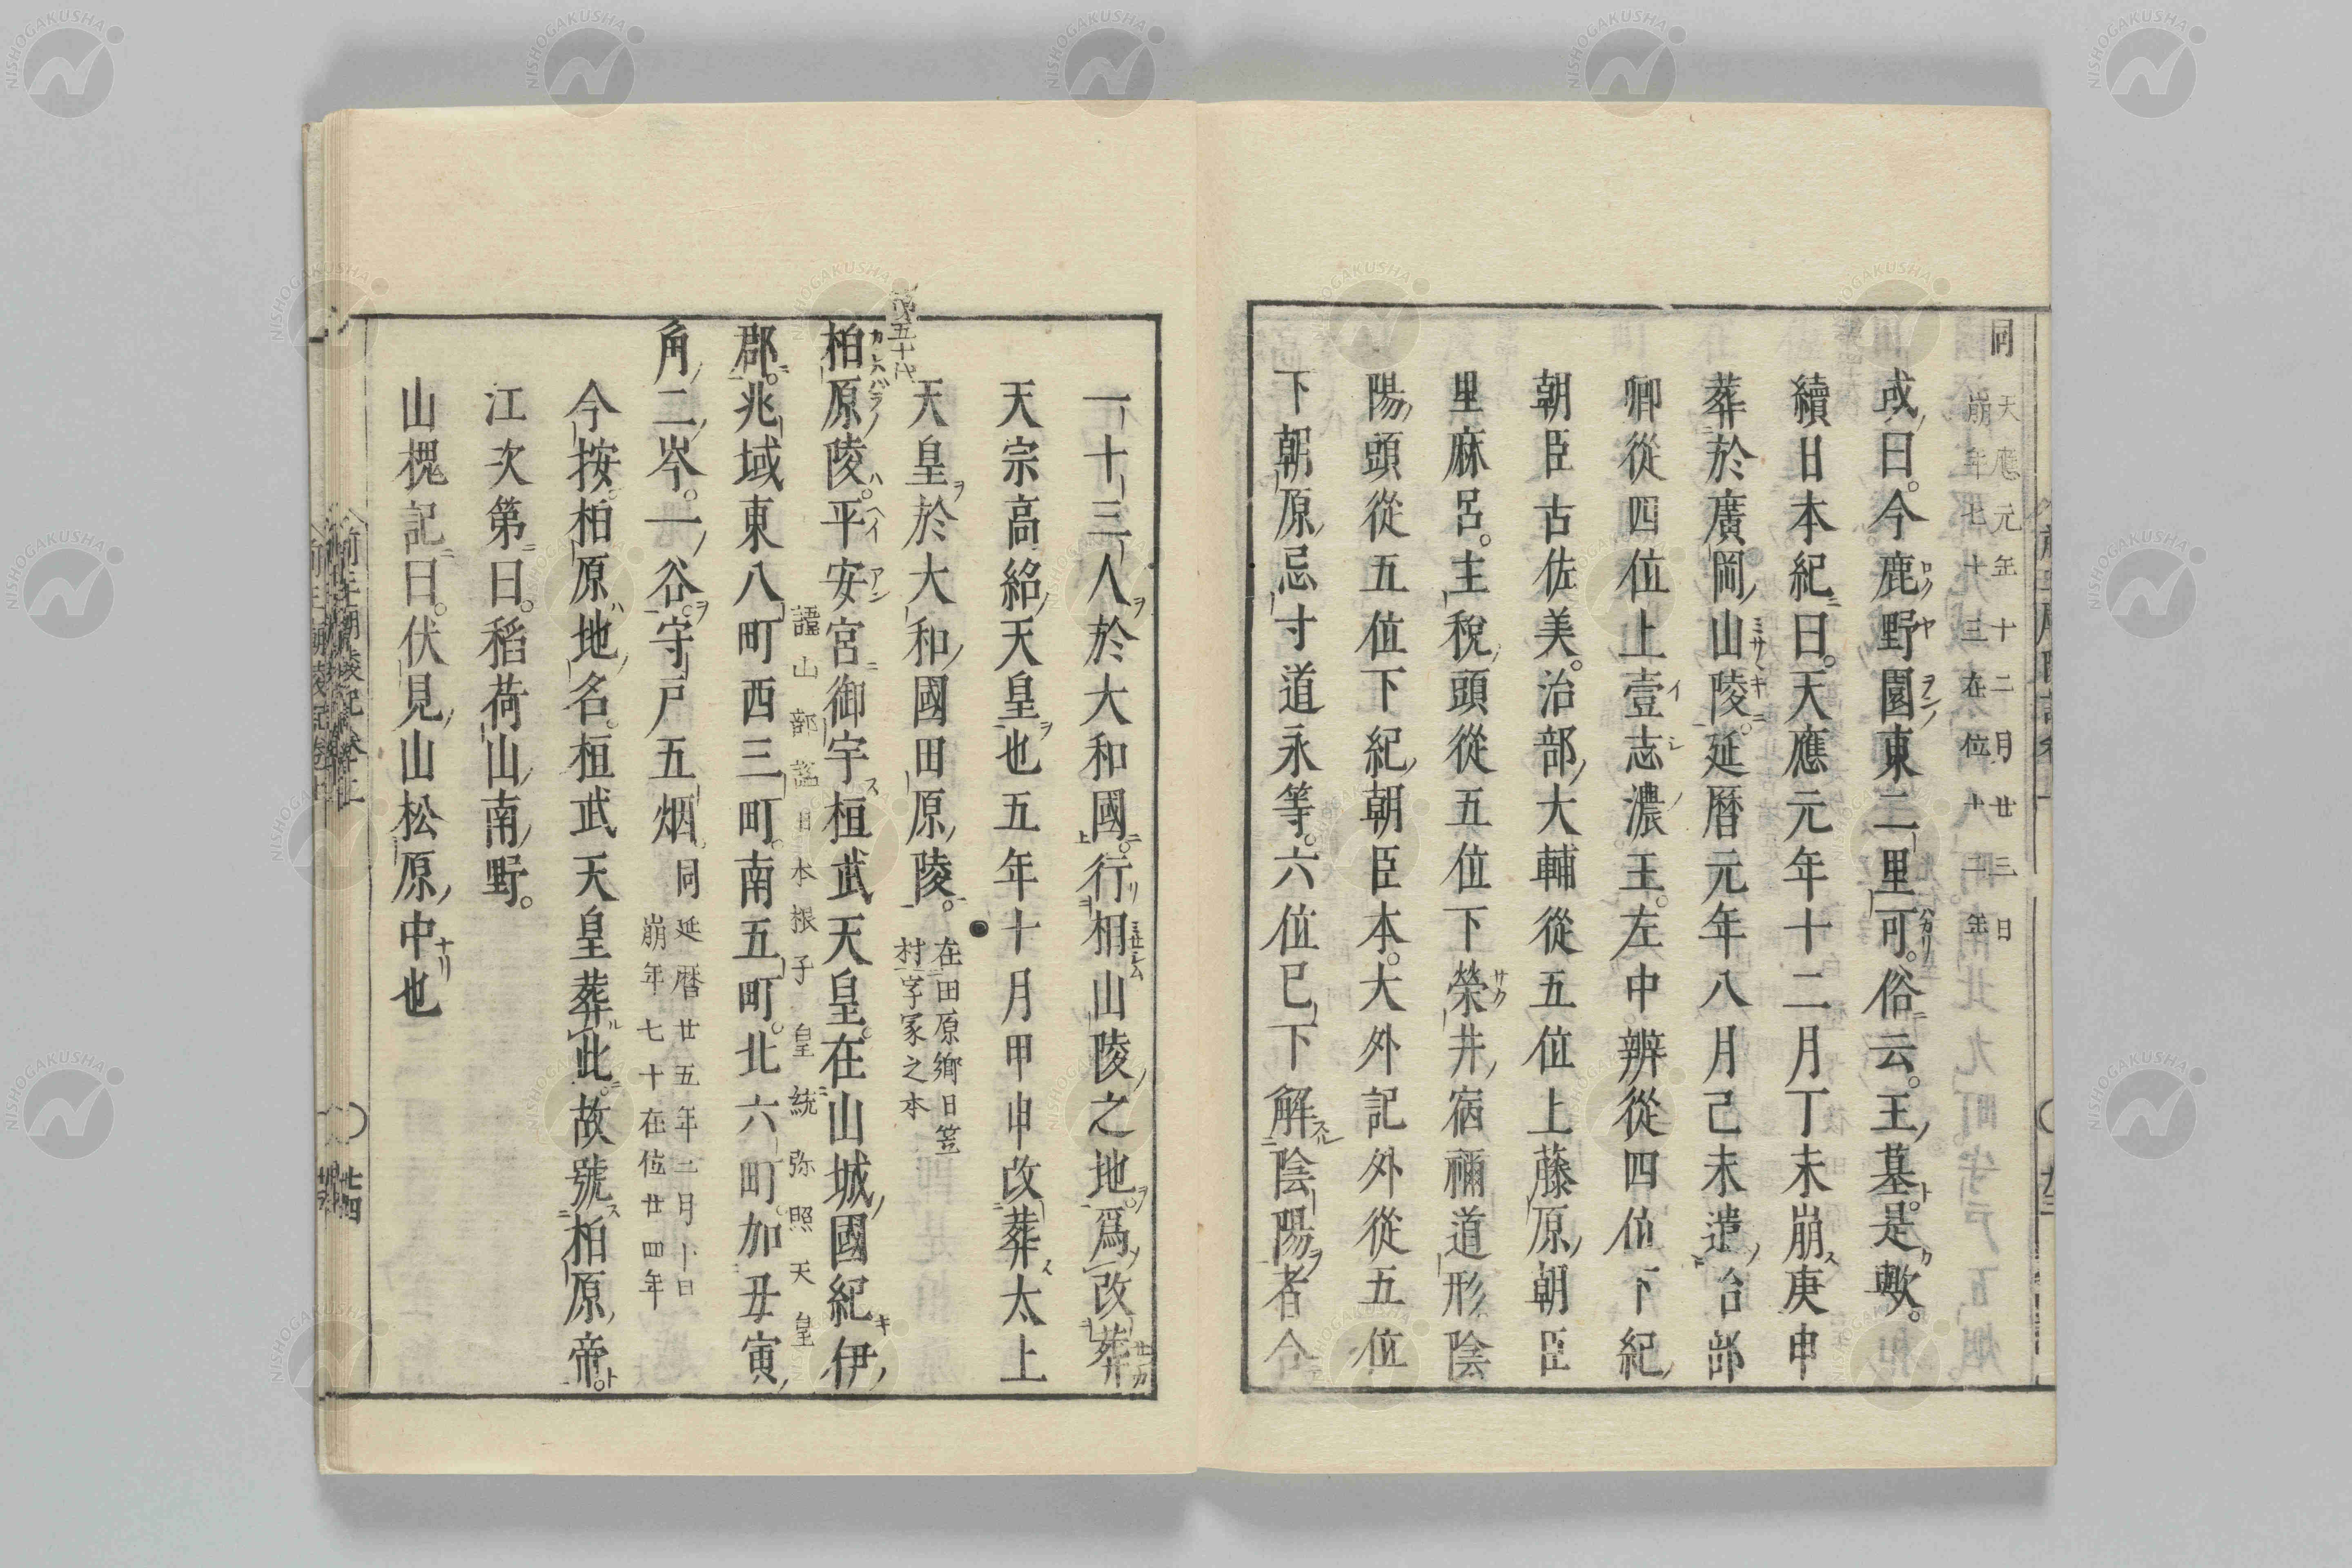 同 天應元年十二月廿三日
崩年七十三在位十二年
或曰。今鹿野園東二里可。俗云。王墓。是歟。
續日本紀曰。天應元年十二月丁未崩庚申
葬於廣岡山陵。延暦元年八月己未遣治部
卿從四位上壹志濃王。左中辨從四位下紀
朝臣古佐美。治部大輔從五位上藤原朝臣
黒麻呂。主税頭從五位下榮井宿禰道形陰
陽頭從五位下紀朝臣本。大外記外從五位
下朝原忌寸道永等。六位已下解陰陽者合
一十三人於大和國。行相山陵之地。爲改葬
天宗高紹天皇也五年十月甲申改葬太上
天皇於大和國田原陵。 在田原郷日笠
村字冢之本
第五十代
柏原陵。平安宮御宇桓武天皇。在山城國紀伊
諱山部諡日本根子皇統弥照天皇
郡。兆域東八町西三町。南五町。北六町。加丑寅
角二岑。一谷。守戸五烟。同 延暦廿五年三月
崩年七十在位廿四年
今按。柏原地名。桓武天皇葬此。故號柏原帝。
江次第曰。稻荷山南野。
山槐記曰。伏見山松原中也